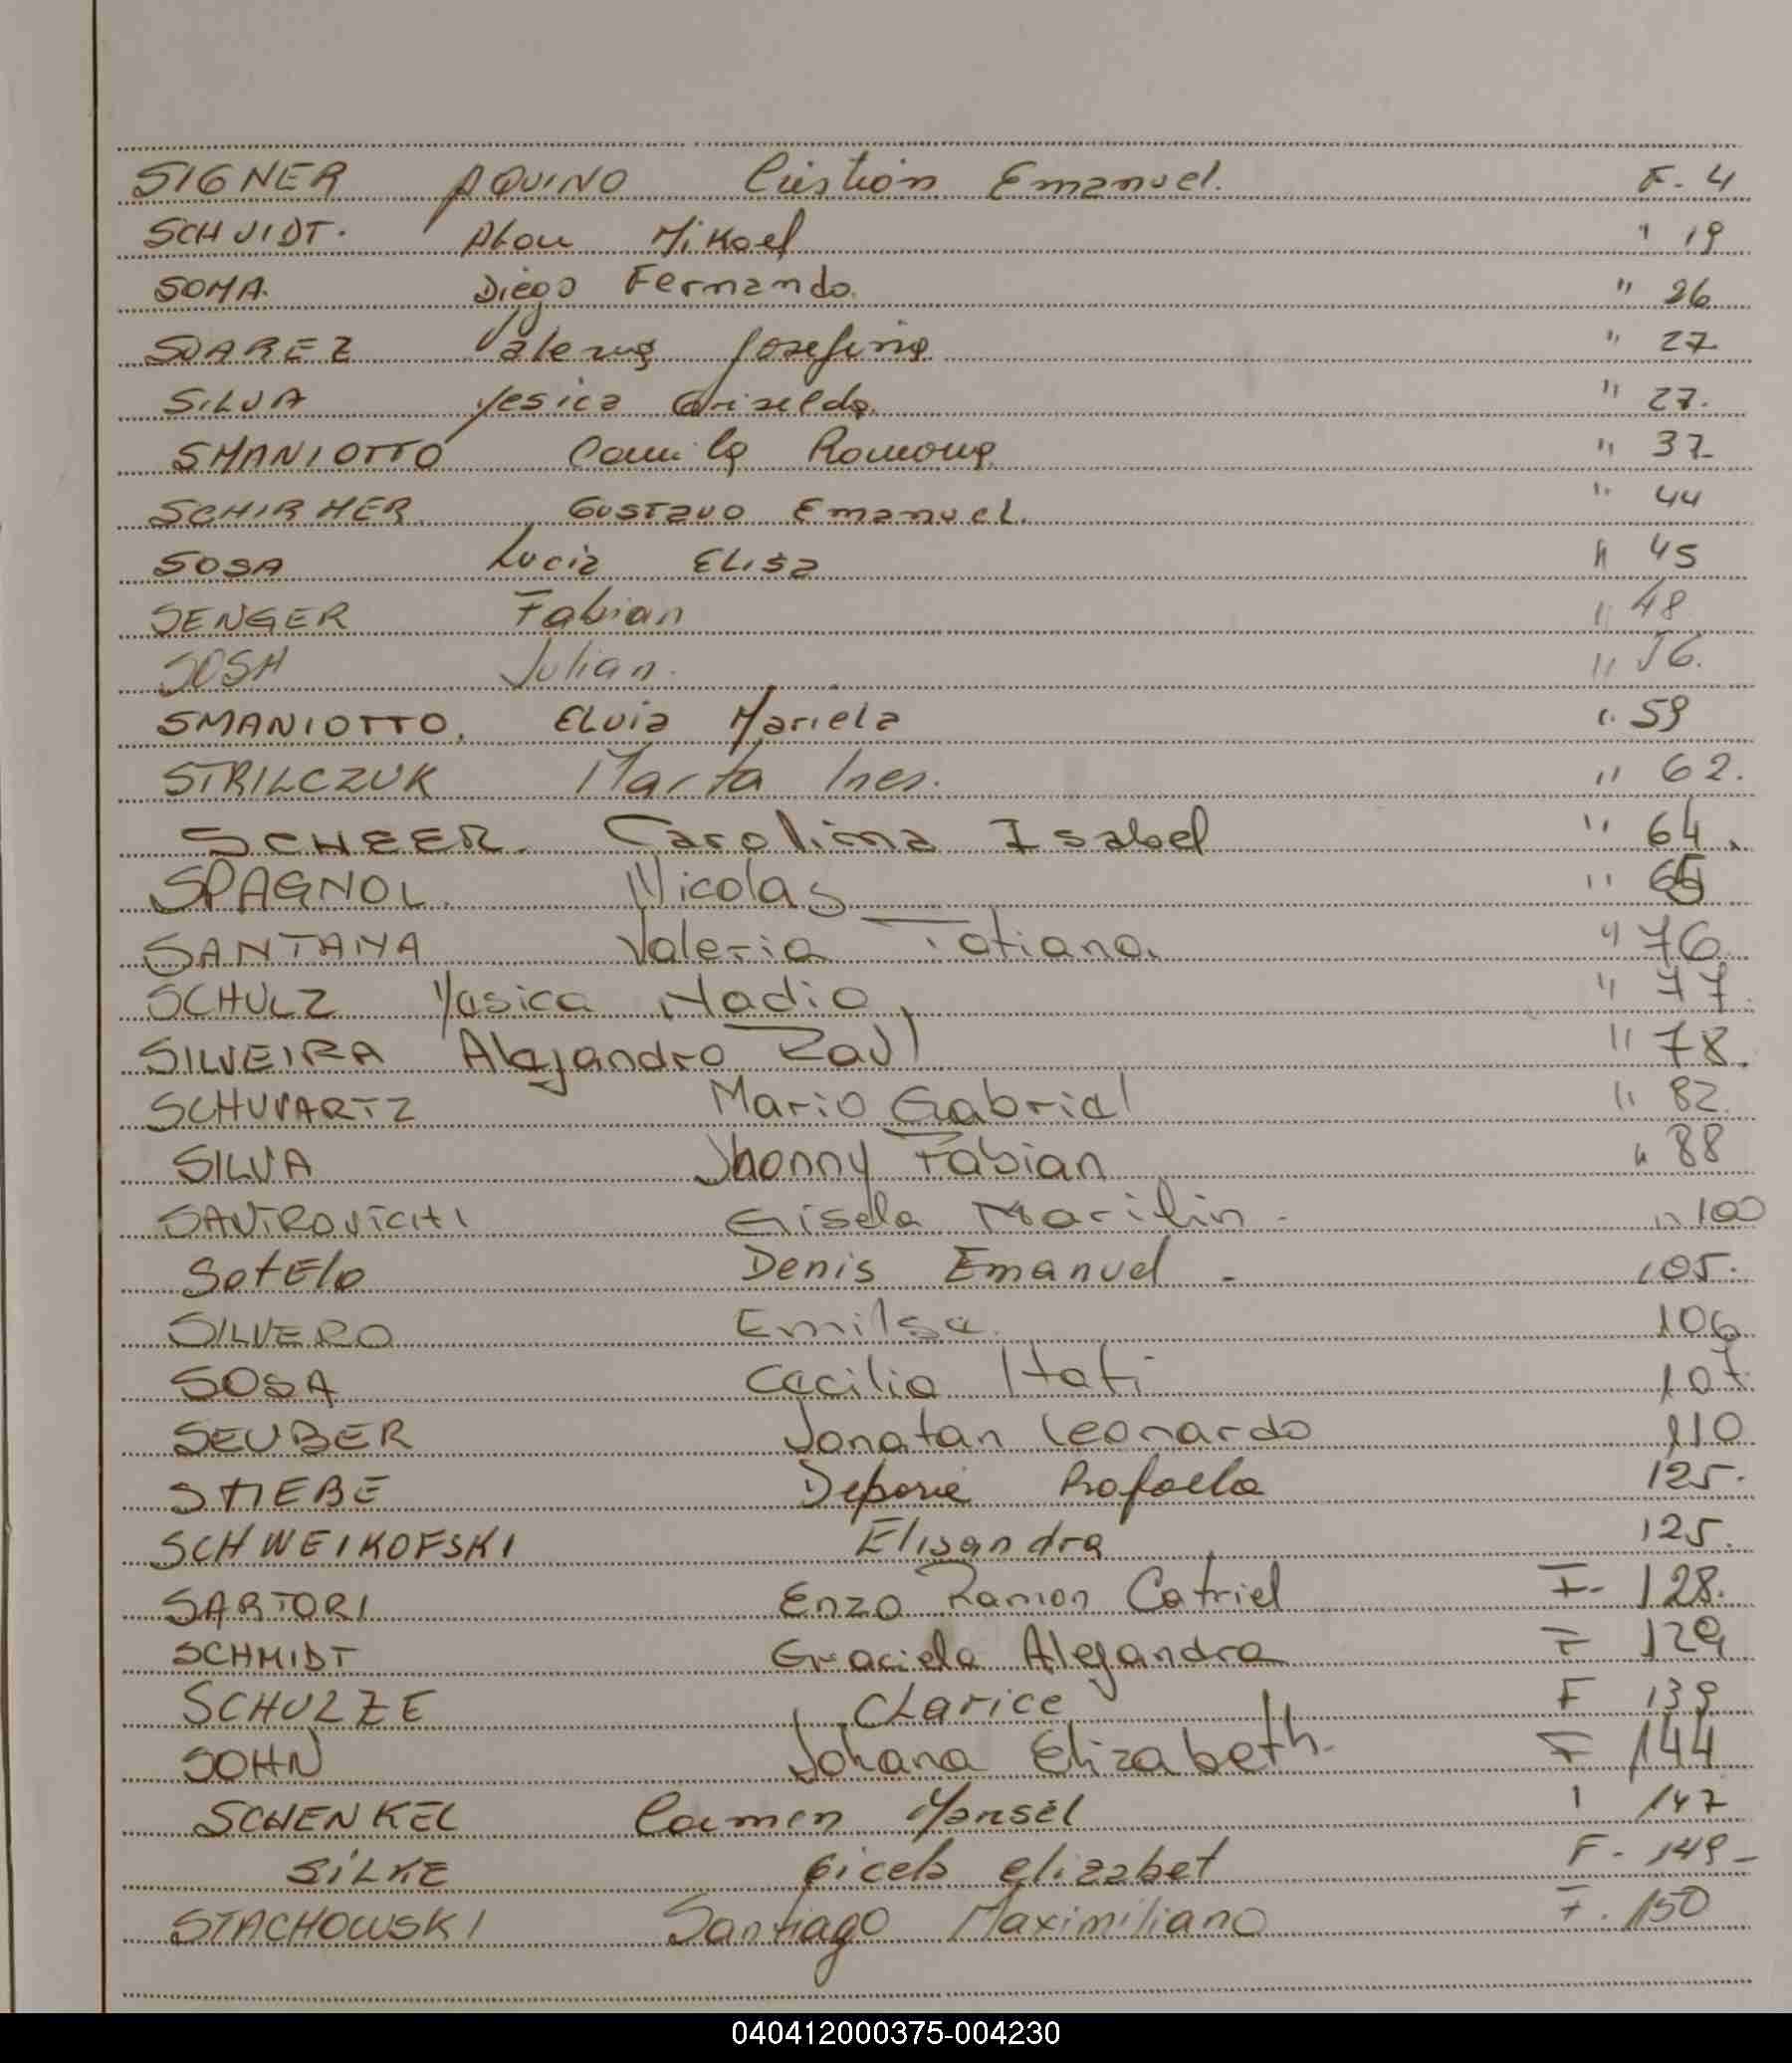 SIGNER AQUINO Cristian Emanuel. F. 4
SCHVIDT. Alan Mikael " 19
SOMA. Diego Fernando. " 26
SUAREZ Valeria Josefina " 27
SILVA Yesica Griselda. " 27.
SMANIOTTO Camila Ramona " 37-
SCHIRMER Gustavo Emanuel. " 44
SOSA Lucia Elisa " 45
SENGER Fabian " 48
SOSA Julian. " 56.
SMANIOTTO. Elvia Mariela " 59
STRILCZUK Marta Ines. " 62.
SCHEER. Carolina Isabel " 64.
SPAGNOL. Nicolas " 65
SANTANA Valeria Tatiana. " 76
SCHULZ Yesica Nadia " 77.
SILVEIRA Alejandro Raul " 78.
SCHUVARTZ Mario Gabriel " 82.
SILVA Jhonny Fabian " 88
Gisela Marilin - " 100
SotElo Denis Emanuel - 105.
SILVERO Emilse. 106
SOSA Cecilia Itati 107.
SEUBER Jonatan Leonardo 110
STIEBE Rafaela 125.
SCHWEIKOFSKI Elisandra 125.
SARTORI Enzo Ramon Catriel F- 128.
SCHMIDT Graciela Alejandra F 129
SCHULZE Clarice F 139
SOHN Johana Elizabeth. F 144
SCHENKEL Carmen Marisel " 147
SILKE Gicela Elizabet F- 149-
STACHOWSKI Santiago Maximiliano F. 150
040412000375-004230